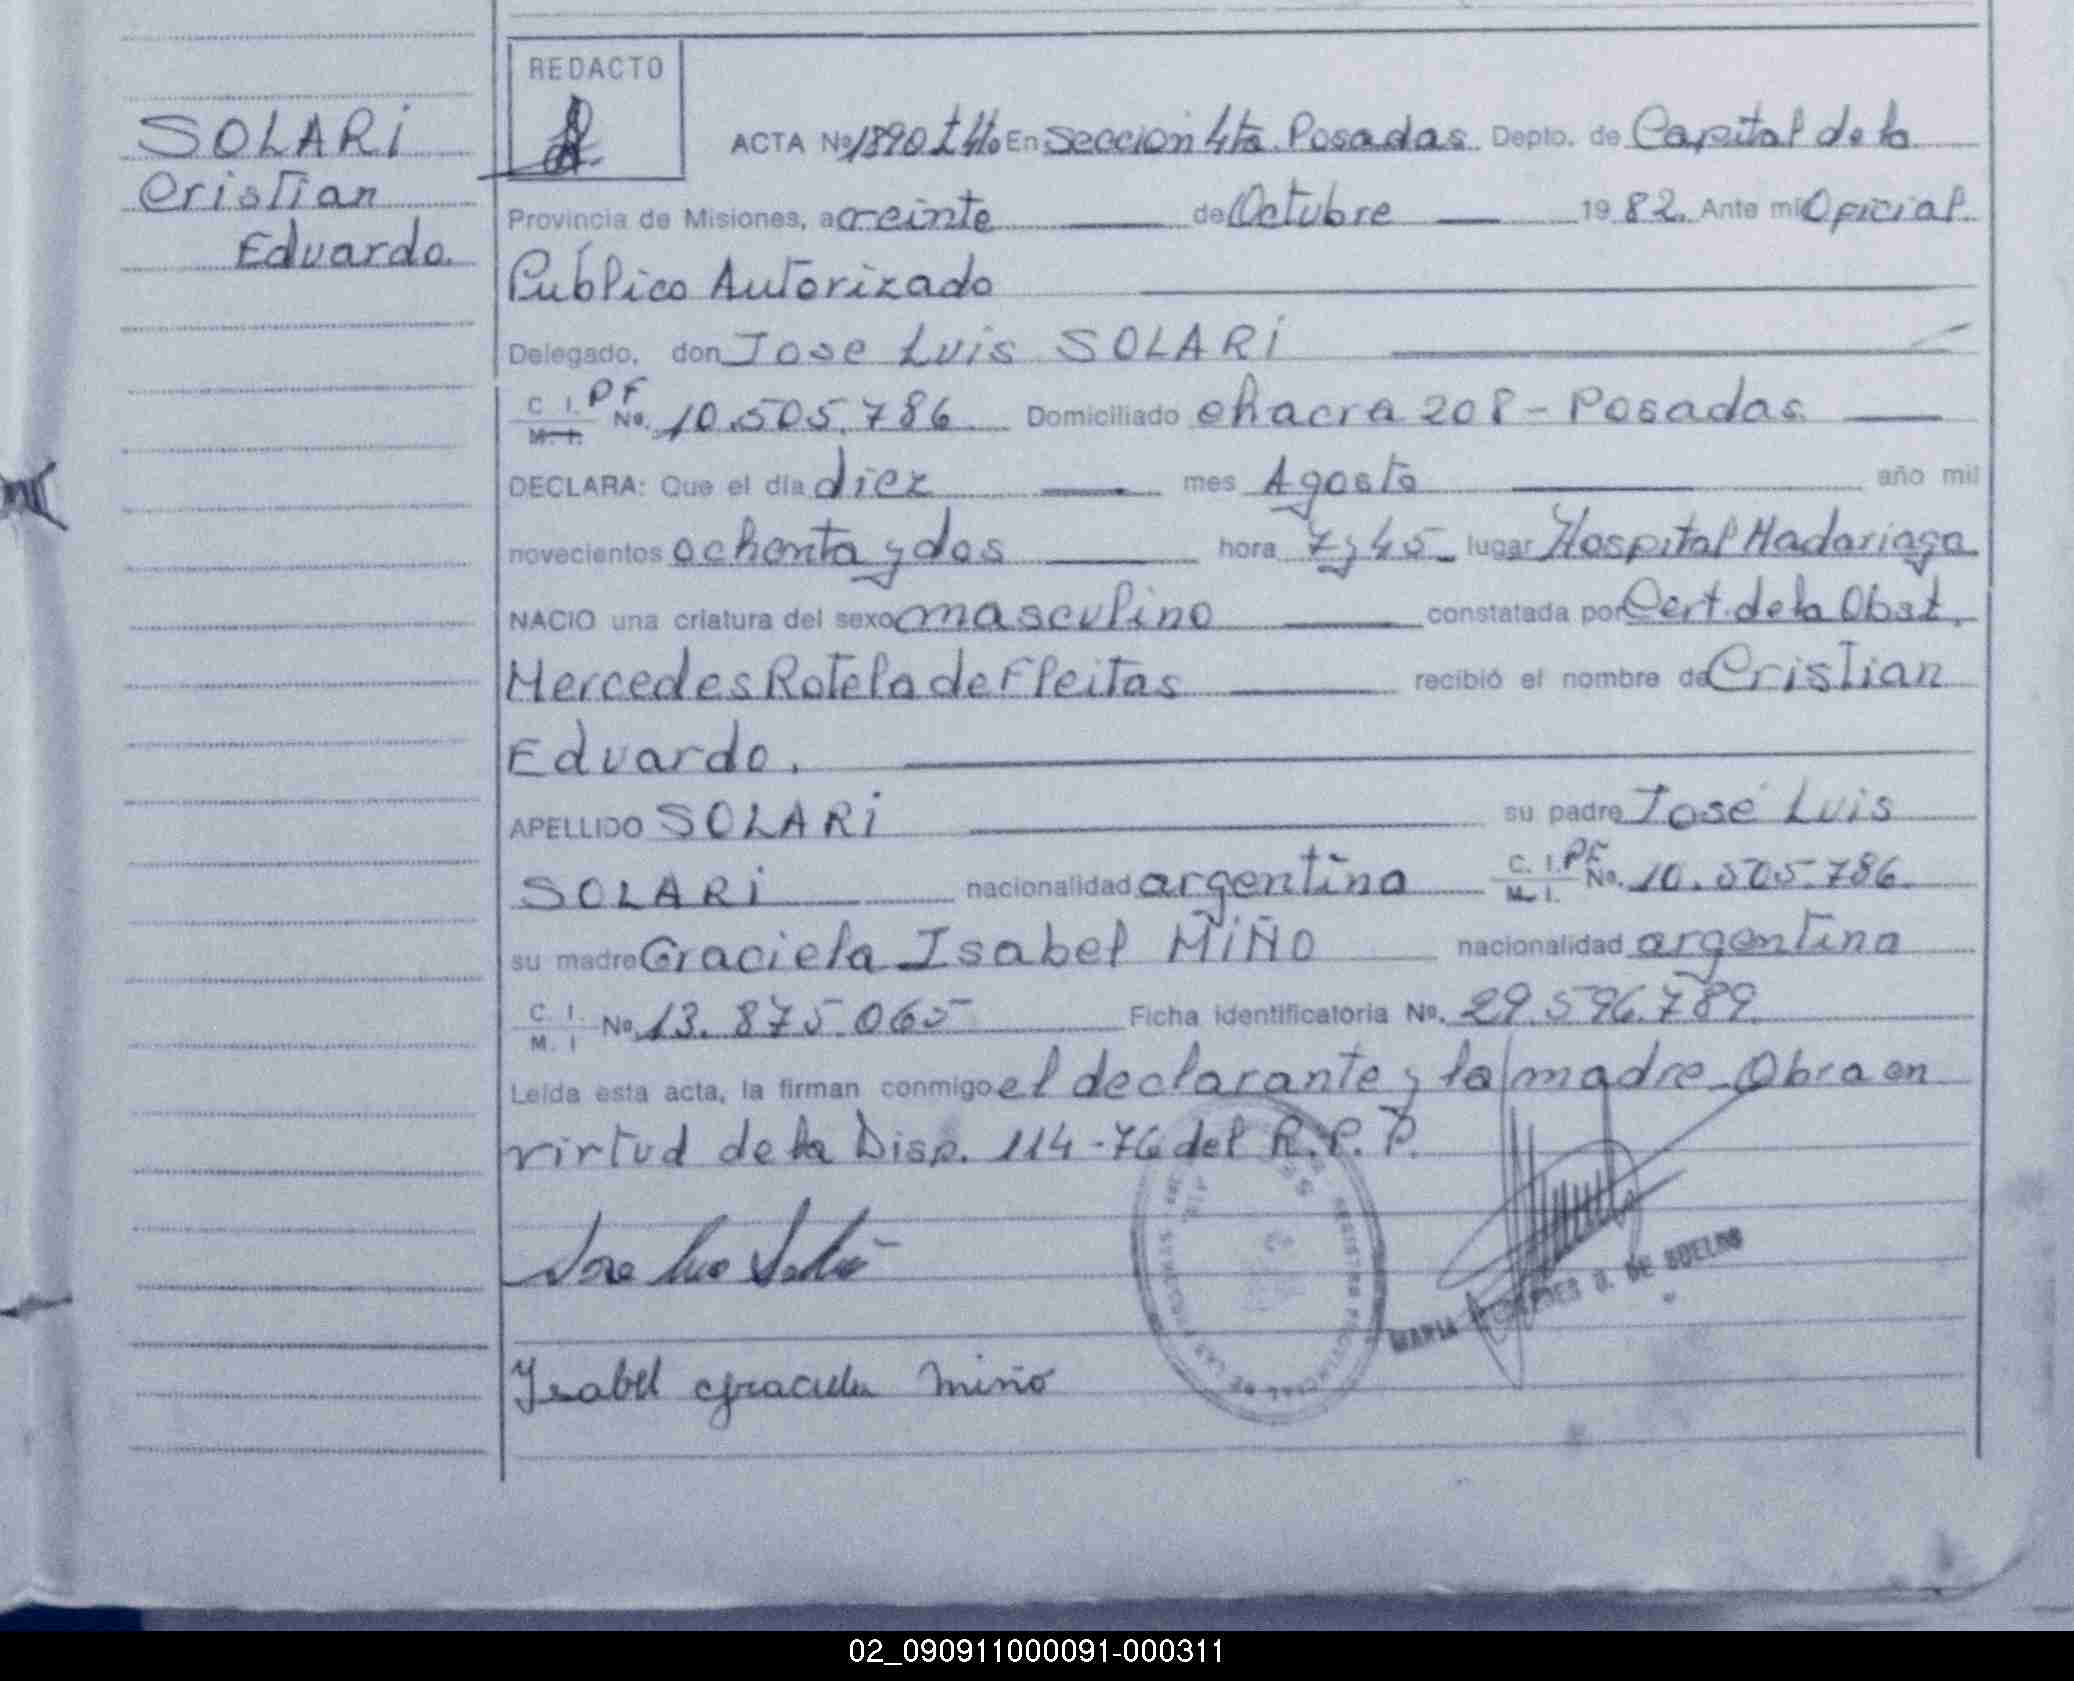 SOLARI
Cristian
Eduardo.
REDACTO
ACTA Nº 1890 tº 4to En Sección 4ta. Posadas Depto. de Capital de la
Provincia de Misiones, a veinte de Octubre 1982. Ante mi Oficial
Público Autorizado
Delegado, don Jose Luis SOLARI
C. I. PF
M. I. No. 10.505.786 Domiciliado chacra 208 - Posadas
DECLARA: Que el día diez mes Agosto año mil
novecientos ochenta y dos hora 7 y 45 lugar Hospital Madariaga
NACIO una criatura del sexo masculino constatada por Cert. de la Obst.
Mercedes Rotela de Fleitas recibió el nombre de Cristian
Eduardo.
APELLIDO SOLARI su padre José Luis
SOLARI nacionalidad argentina C. I. PF M. I. No. 10.505.786
su madre Graciela Isabel MIÑO nacionalidad argentina
C. I.
M. I No 13.875.065 Ficha identificatoria No. 29.596.789
Leída esta acta, la firman conmigo el declarante y la madre Obra en
virtud de la Disp. 114-76 del R.P.P.
Jose Luis Solari
Ysabel Graciela Miño
REGISTRO PROVINCIAL DE LAS PERSONAS
MARIA DE SUELDO
02_090911000091-000311